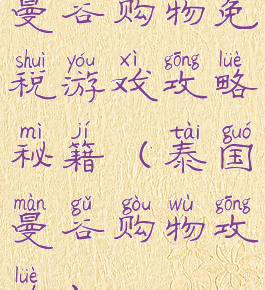 曼谷购物免
shuì yóu xì gōng lüè
税游戏攻略
mì jí tài guó
秘籍(泰国
màn gǔ gòu wù gōng
曼谷购物攻
lüè